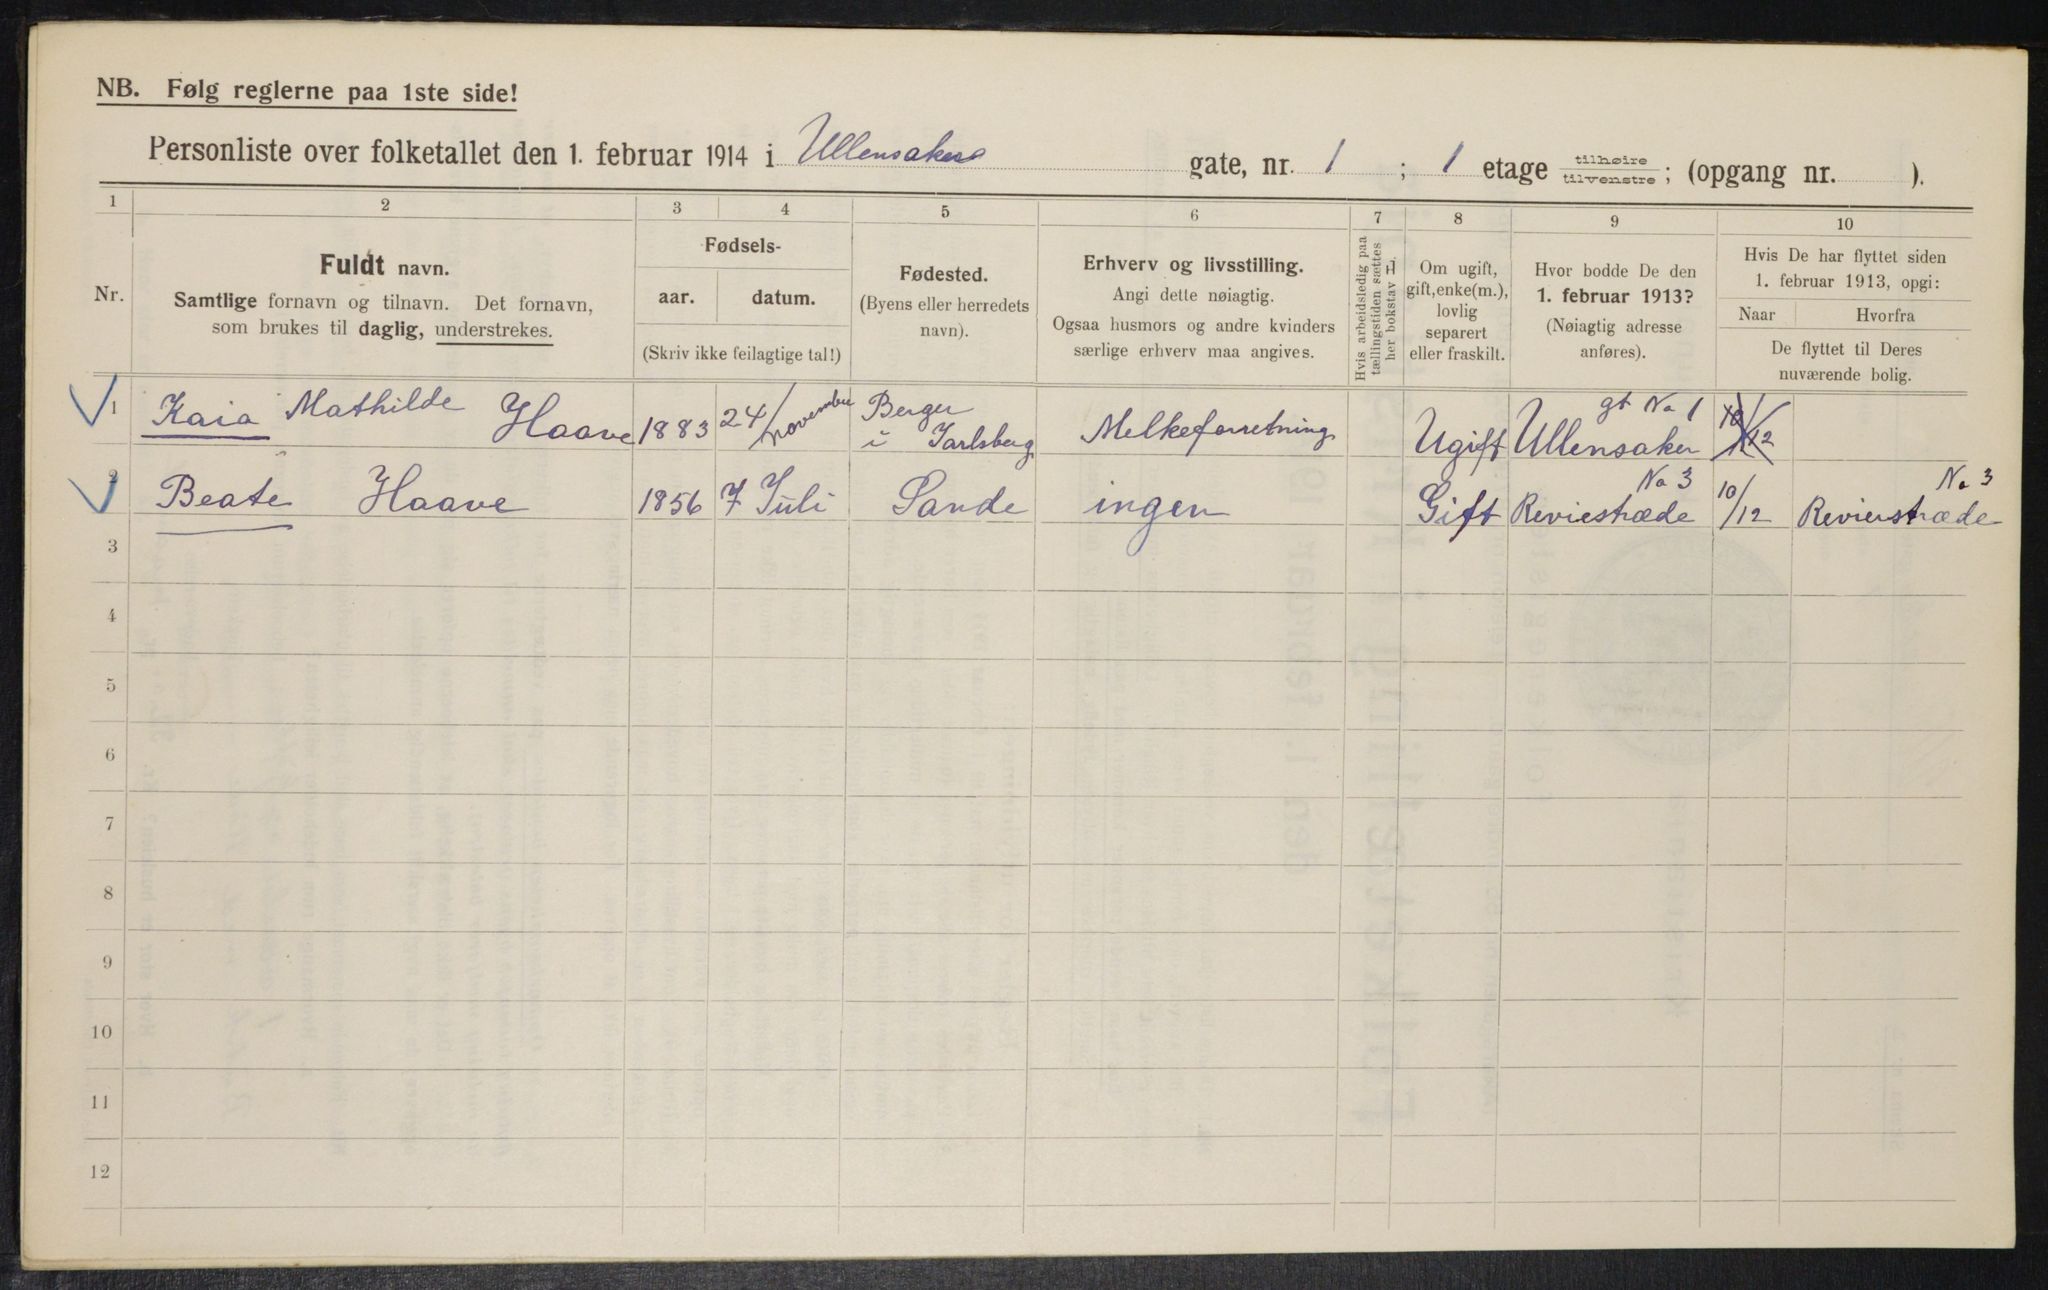 NB. Følg reglerne paa 1ste side!
Personliste over folketallet den 1. februar 1914 i Ullensakers gate, nr. 1 ; 1 etage tilhøire / tilvenstre ; (opgang nr. ).
1 2 3 4 5 6 7 8 9 10
Nr.
Fuldt navn.
Samtlige fornavn og tilnavn. Det fornavn,
som brukes til daglig, understrekes.
Fødsels-
aar. datum.
(Skriv ikke feilagtige tal!)
Fødested.
(Byens eller herredets
navn).
Erhverv og livsstilling.
Angi dette nøiagtig.
Ogsaa husmors og andre kvinders
særlige erhverv maa angives.
Hvis arbeidsledig paa
tællingstiden sættes
her bokstav L.
Om ugift,
gift, enke(m.),
lovlig
separert
eller fraskilt.
Hvor bodde De den
1. februar 1913?
(Nøiagtig adresse
anføres).
Hvis De har flyttet siden
1. februar 1913, opgi:
Naar Hvorfra
De flyttet til Deres
nuværende bolig.
1 Kaia Mathilde Haave 1883 24/november Berger i Jarlsberg Melkeforretning Ugift Ullensaker gt No 1
2 Beate Haave 1856 7 Juli Sande ingen Gift Reviestræde No 3 10/12 Revierstræde No 3
3
4
5
6
7
8
9
10
11
12